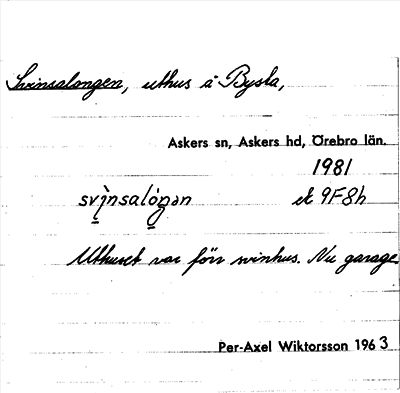 Svinsalongen, uthus å Bysta,
Askers sn, Askers hd, Örebro län.
1981
svi̠nsalo̠ŋən ek 9F8h
Uthuset var förr svinhus. Nu garage.
Per-Axel Wiktorsson 1963